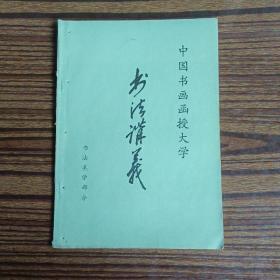 中国书画函授大学
书法讲义
书法美学部分